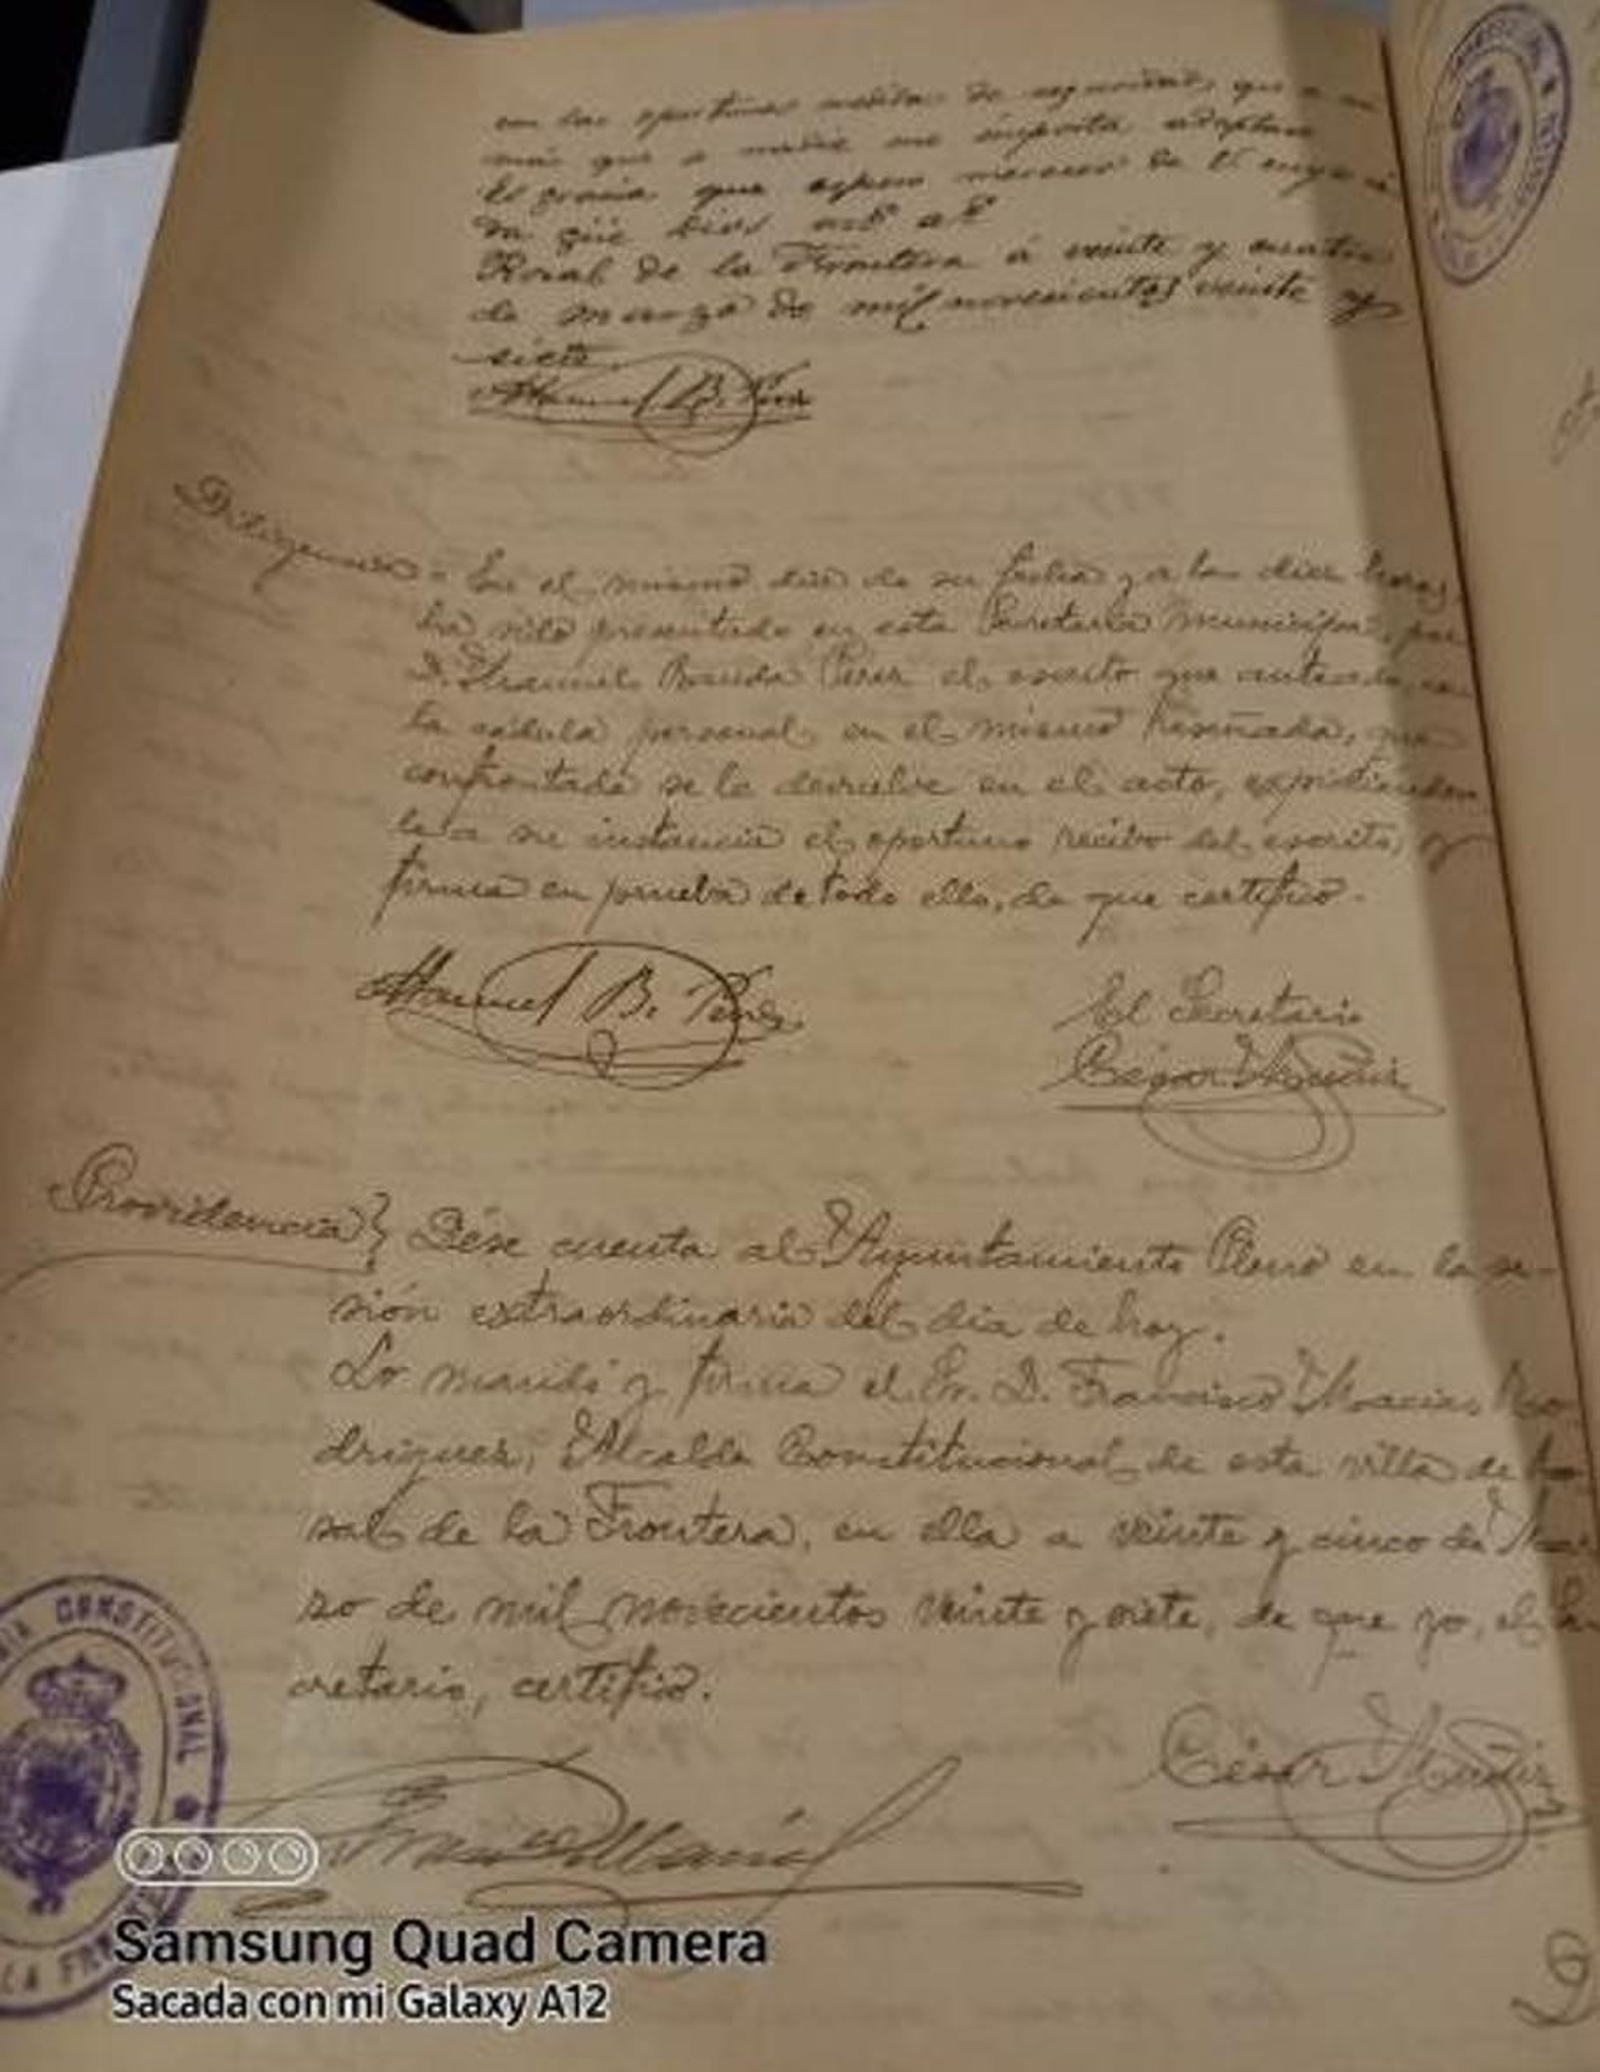 con las oportunas medidas de seguridad, que a
mas que a nadie me importa adoptar
Es gracia que espero merecer de V. cuya
da güe Dios ms as
Rosal de la Frontera á veinte y cuatro
de marzo de mil novecientos veinte y
siete.
Manuel B. Pérez
Diligencia = En el mismo dia de su fecha y a las diez horas,
ha sido presentado en esta Secretaria Municipal, por
D. Manuel Banda Perez el escrito que antecede, con
la cédula personal en el mismo reseñada, que
confrontada se le devuelve en el acto, expidiendo
le a su instancia el oportuno recibo del escrito, y
firma en prueba de todo ello, de que certifico.
Manuel B. Pérez
El Secretario
César Muñiz
Providencia } Dése cuenta al Ayuntamiento Pleno en la se-
sión extraordinaria del dia de hoy.
Lo mandó y firma el Sr. D. Francisco Macias Ro
driguez, Alcalde Constitucional de esta villa de Ro
sal de la Frontera, en ella a veinte y cinco de Mar
zo de mil novecientos veinte y siete, de que yo, el Se
cretario, certifico.
César Muñiz
CONSTITUCIONAL
LA FRONTERA
Samsung Quad Camera
Sacada con mi Galaxy A12